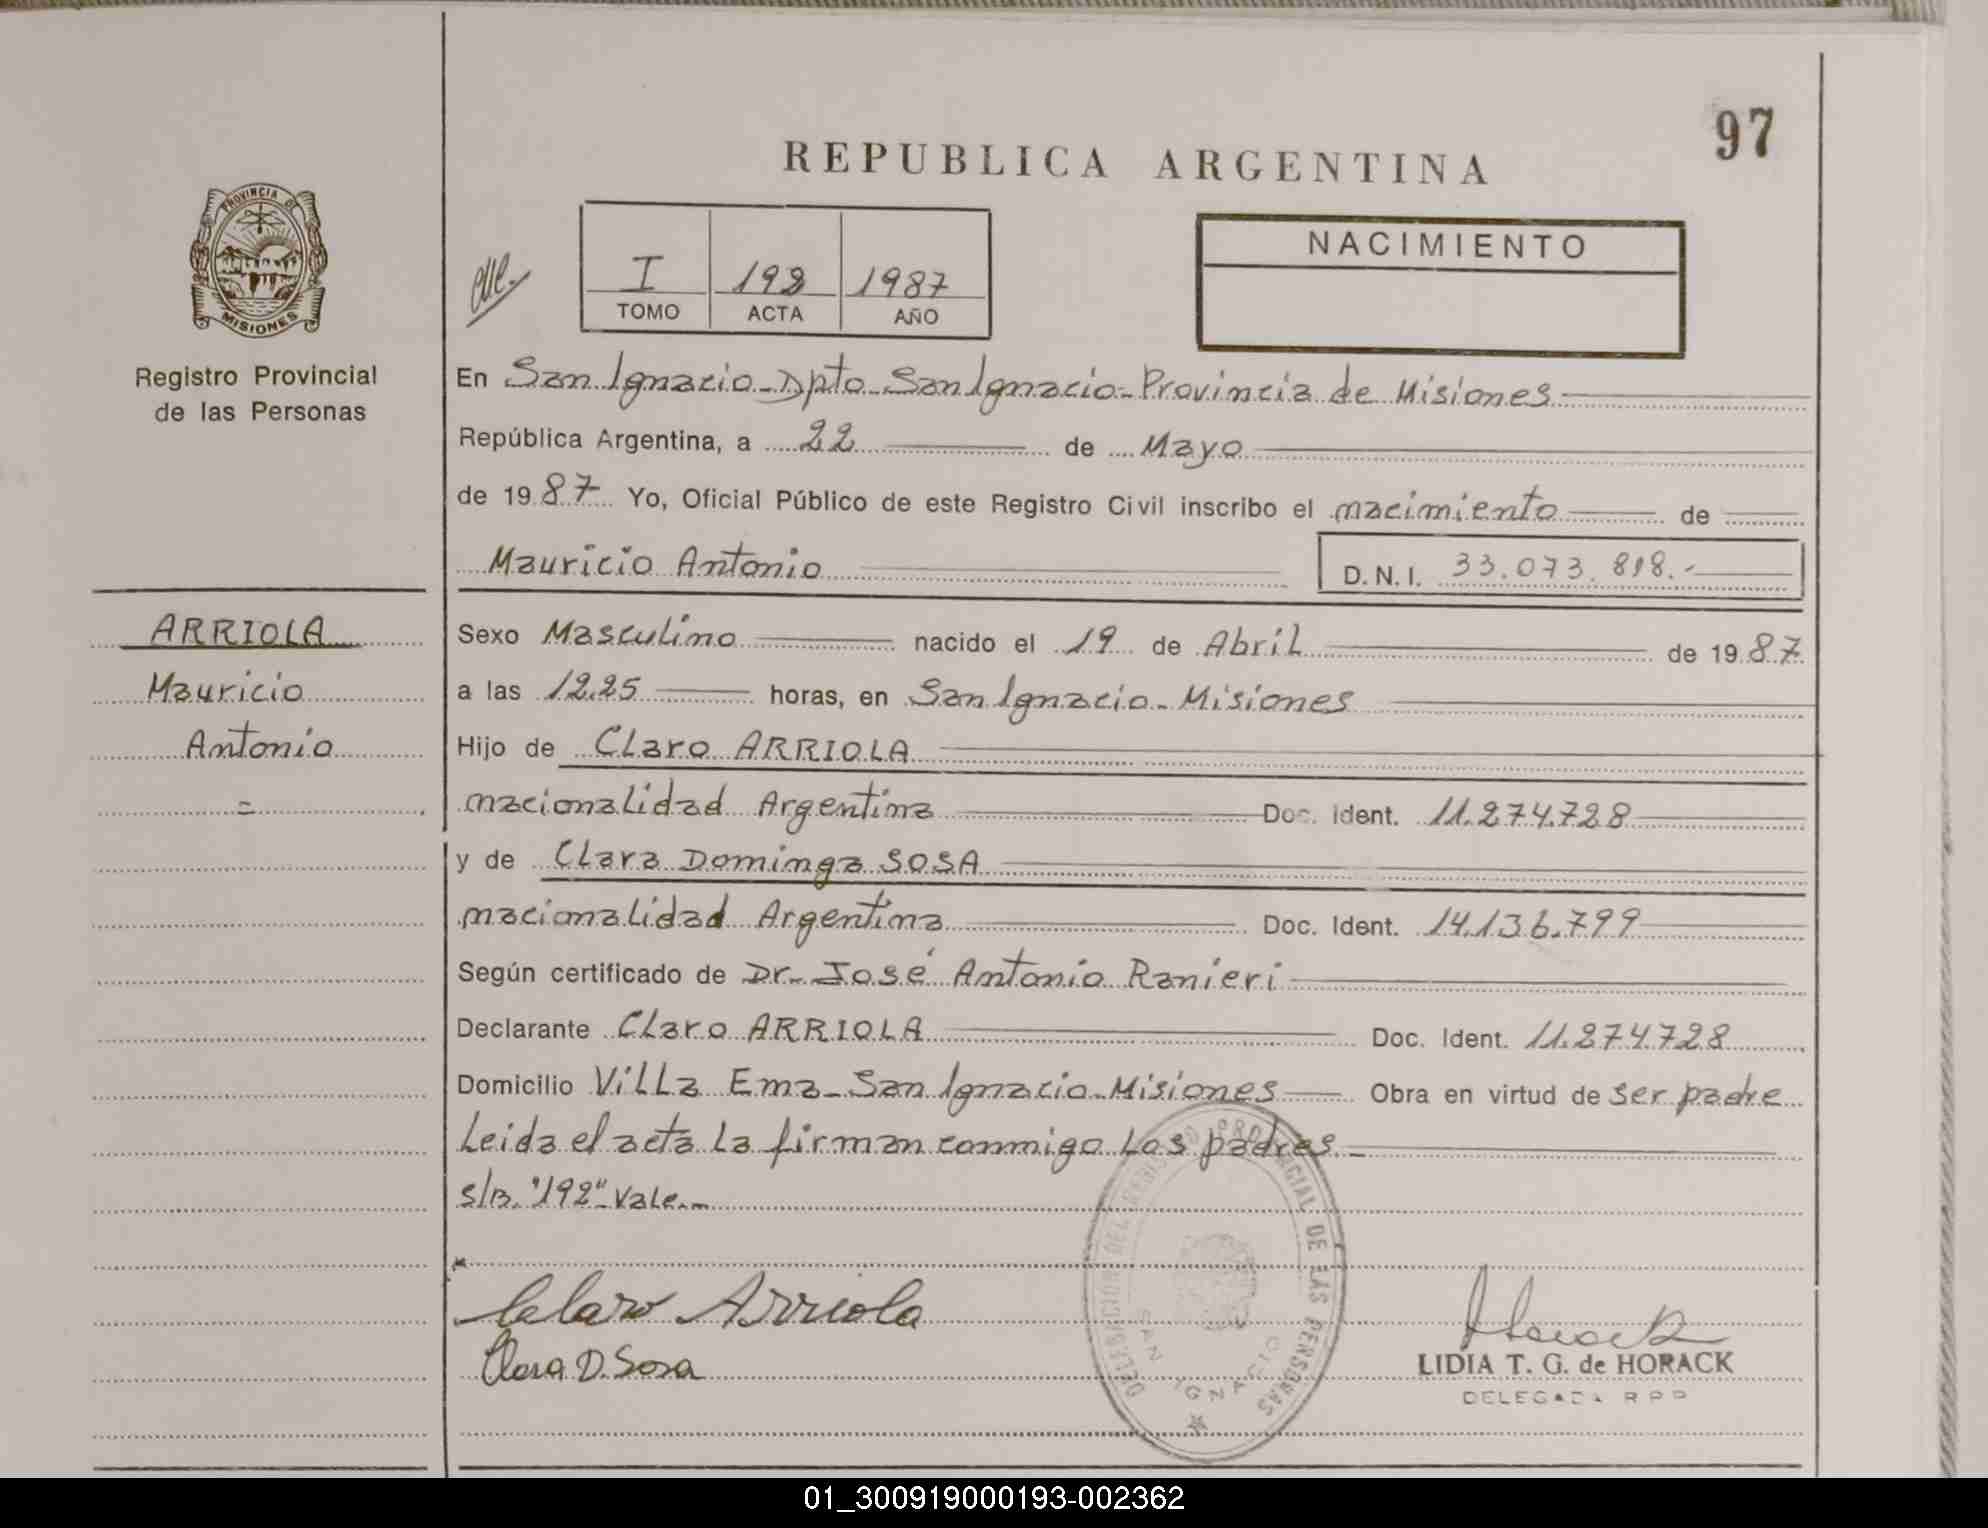 97
REPUBLICA ARGENTINA
PROVINCIA DE
MISIONES
Registro Provincial
de las Personas
I 192 1987
TOMO ACTA AÑO
NACIMIENTO
En San Ignacio - Dpto - San Ignacio - Provincia de Misiones
República Argentina, a 22 de Mayo
de 1987 Yo, Oficial Público de este Registro Civil inscribo el nacimiento de
Mauricio Antonio D.N.I. 33.073.818.-
ARRIOLA
Mauricio
Antonio
=
Sexo Masculino nacido el 19 de Abril de 1987
a las 12.25 horas, en San Ignacio - Misiones
Hijo de Claro ARRIOLA
nacionalidad Argentina Doc. Ident. 11.274.728
y de Clara Dominga SOSA
nacionalidad Argentina Doc. Ident. 14.136.799
Según certificado de Dr - José Antonio Ranieri
Declarante Claro ARRIOLA Doc. Ident. 11.274.728
Domicilio Villa Ema - San Ignacio - Misiones Obra en virtud de ser padre
Leida el acta la firman conmigo los padres -
s/B. "192" - Vale. -
Claro Arriola
Clara D. Sosa
DELEGACION DEL REGISTRO PROVINCIAL DE LAS PERSONAS
SAN IGNACIO
Horack
LIDIA T. G. de HORACK
DELEGADA R P P
01_300919000193-002362